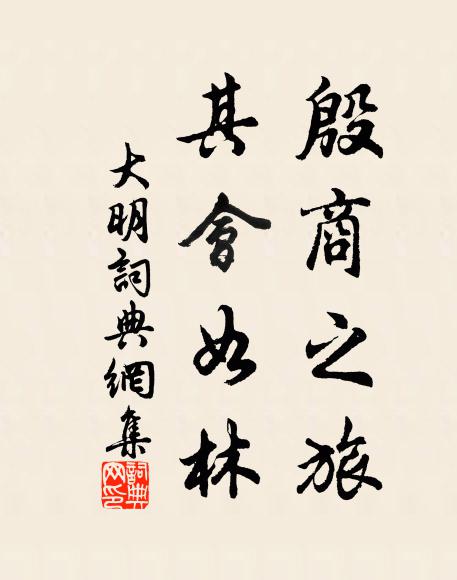 殷商之旅
其會如林
大明詞典網集
詞典
网印